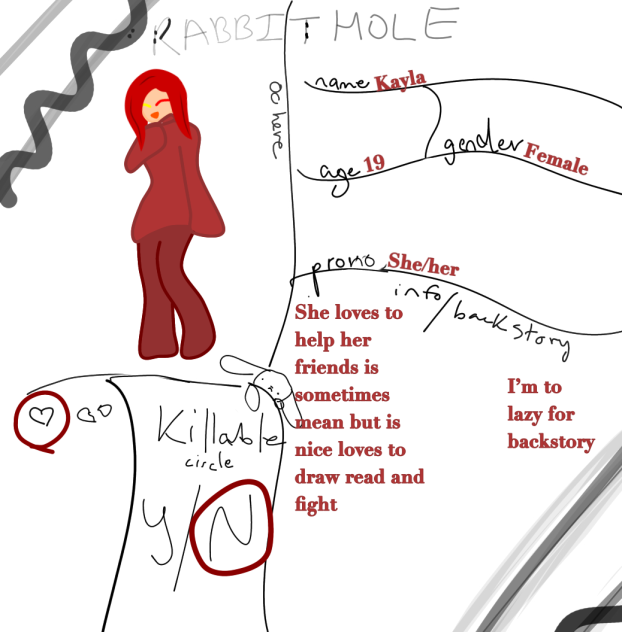 RABBIT HOLE
oc here
name Kayla
gender Female
age 19
prono She/her
info/backstory
She loves to
help her
friends is
sometimes
mean but is
nice loves to
draw read and
fight
I'm to
lazy for
backstory
Killable
circle
Y/N